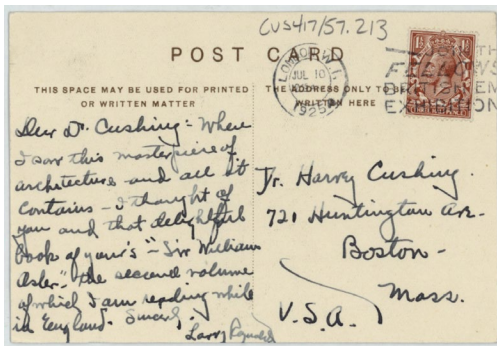 CUS417/57.213
POST CARD
THIS SPACE MAY BE USED FOR PRINTED
OR WRITTEN MATTER
THE ADDRESS ONLY TO BE
WRITTEN HERE
LONDON. W.1.
JUL 10
1925
BRITISH EM
EXHIBITION
Dear Dr. Cushing:- When
I saw this masterpiece of
architecture and all it
contains - I thought of
you and that delightful
book of your's "- Sir William
Osler". the second volume
of which I am reading while
in England. Sincerely,
Larry Reynolds
Dr. Harvey Cushing.
721 Huntington Ave-
Boston-
Mass.
U.S.A.